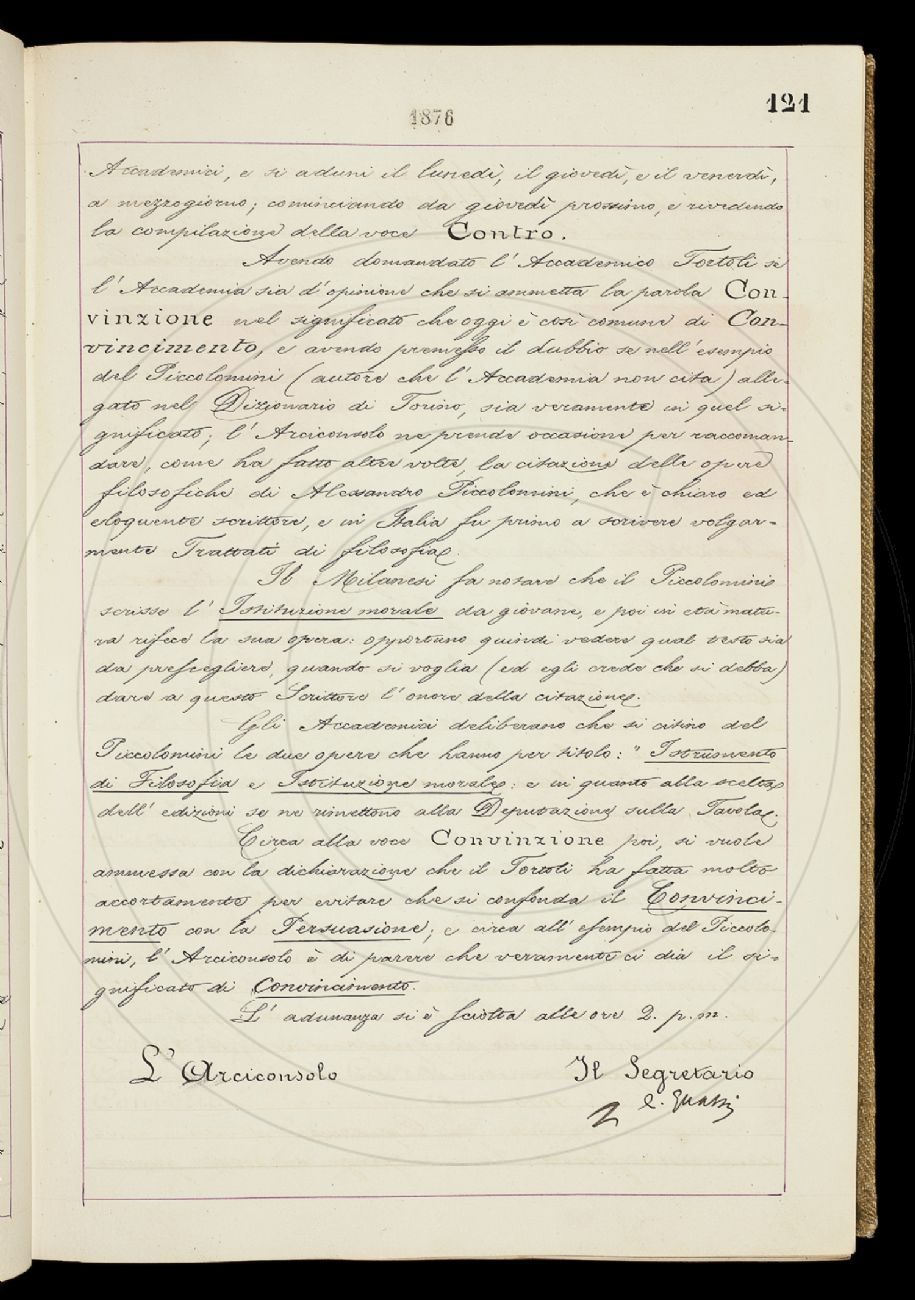 1876
121
Accademici, e si aduni il lunedì, il giovedì, e il venerdì,
a mezzogiorno; cominciando da giovedì prossimo, e rivedendo
la compilazione della voce Contro.
Avendo domandato l'Accademico Tortoli se
l'Accademia sia d'opinione che si ammetta la parola Con-
vinzione nel significato che oggi è così comune di Con-
vincimento, e avendo premesso il dubbio se nell'esempio
del Piccolomini (autore che l'Accademia non cita) alle-
gato nel Dizionario di Torino, sia veramente in quel si-
gnificato; l'Arciconsolo ne prende occasione per raccoman-
dare, come ha fatto altre volte, la citazione delle opere
filosofiche di Alessandro Piccolomini, che è chiaro ed
eloquente scrittore, e in Italia fu primo a scrivere volgar-
mente Trattati di filosofia.
Il Milanesi fa notare che il Piccolomini
scrisse l'Istituzione morale da giovane, e poi in età matu-
ra rifece la sua opera: opportuno quindi vedere qual testo sia
da prescegliere, quando si voglia (ed egli crede che si debba)
dare a questo Scrittore l'onore della citazione.
Gli Accademici deliberano che si citino del
Piccolomini le due opere che hanno per titolo: "Istrumento
di Filosofia e Istituzione morale: e in quanto alla scelta
dell'edizioni se ne rimettono alla Deputazione sulla Tavola.
Circa alla voce Convinzione poi, si vuole
ammessa con la dichiarazione che il Tortoli ha fatta molto
accortamente per evitare che si confonda il Convinci-
mento con la Persuasione; e circa all'esempio del Piccolo-
mini, l'Arciconsolo è di parere che veramente ci dia il si-
gnificato di Convincimento.
L'adunanza si è sciolta alle ore 2. p.m.
L'Arciconsolo
Il Segretario